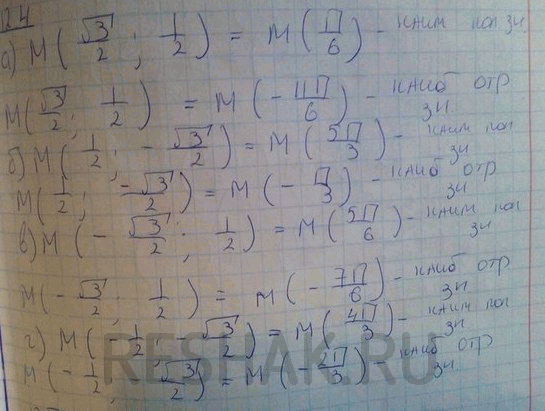 124
а) M(√3/2 ; 1/2) = M(П/6) - наим пол зн.
M(√3/2 ; 1/2) = M(- 11П/6) - наиб отр зн
б) M(1/2 ; - √3/2) = M(5П/3) - наим пол зн
M(1/2 ; -√3/2) = M(- П/3) - наиб отр зн
в) M(- √3/2 ; 1/2) = M(5П/6) - наим пол зн
M(- √3/2 ; 1/2) = M(- 7П/6) - наиб отр зн
г) M(- 1/2 ; - √3/2) = M(4П/3) - наим пол зн
M(- 1/2 ; √3/2) = M(- 2П/3) - наиб отр зн.
RESHAK.RU